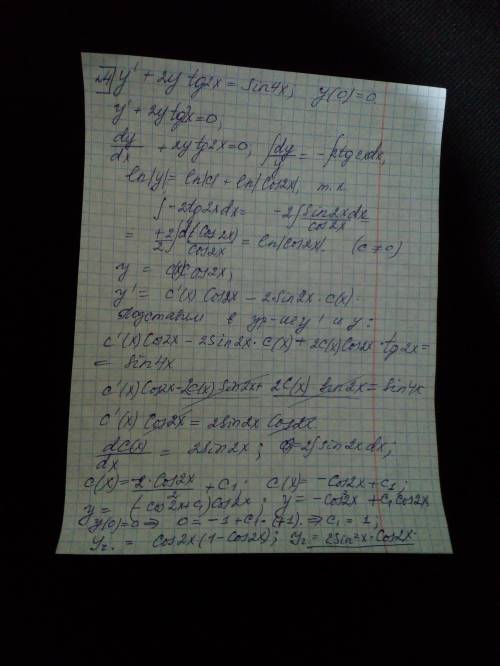 №4 y' + 2y tg2x = sin4x; y(0)=0
y' + 2y tg2x = 0,
dy/dx + 2y tg2x = 0, ∫dy/y = -∫2tg2xdx,
ln|y| = ln|c| + ln|cos2x|, т.к.
∫-2tg2xdx = -2∫sin2xdx/cos2x
= +2/2∫d(cos2x)/cos2x = ln|cos2x|. (c≠0)
y = c(x)cos2x,
y' = c'(x)cos2x - 2sin2x·c(x).
Подставим в ур-ие y' и y:
c'(x)cos2x - 2sin2x·c(x) + 2c(x)cos2x·tg2x =
= sin4x
c'(x)cos2x - 2c(x)sin2x + 2c(x)sin2x = sin4x
c'(x)cos2x = 2sin2x cos2x
dc(x)/dx = 2sin2x; =2∫sin2xdx;
c(x) = -2·cos2x/2 + c₁; c(x) = -cos2x + c₁;
y = (-cos2x + c₁)cos2x; y = -cos²2x + c₁cos2x,
y(0)=0 ⇒ 0 = -1 + c₁·(+1). ⇒ c₁ = 1;
= cos2x(1-cos2x); = 2sin²x·cos2x.